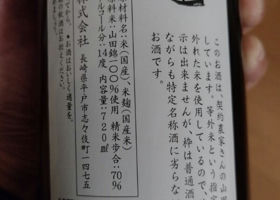 このお酒は、契約農家さんの山田
しています。等外米という推定
外れた米を使用しているので、
示は出来ませんが、枠は普通酒
ながらも特定名称酒に劣らな
お酒です。
材料名：米（国産）米麹（国産米）
料米：山田錦100％使用 精米歩合：70％
ルコール分：14度 内容量：720㎖
株式会社 長崎県平戸市志々伎町一四七五
●お酒はおいしく適量を。